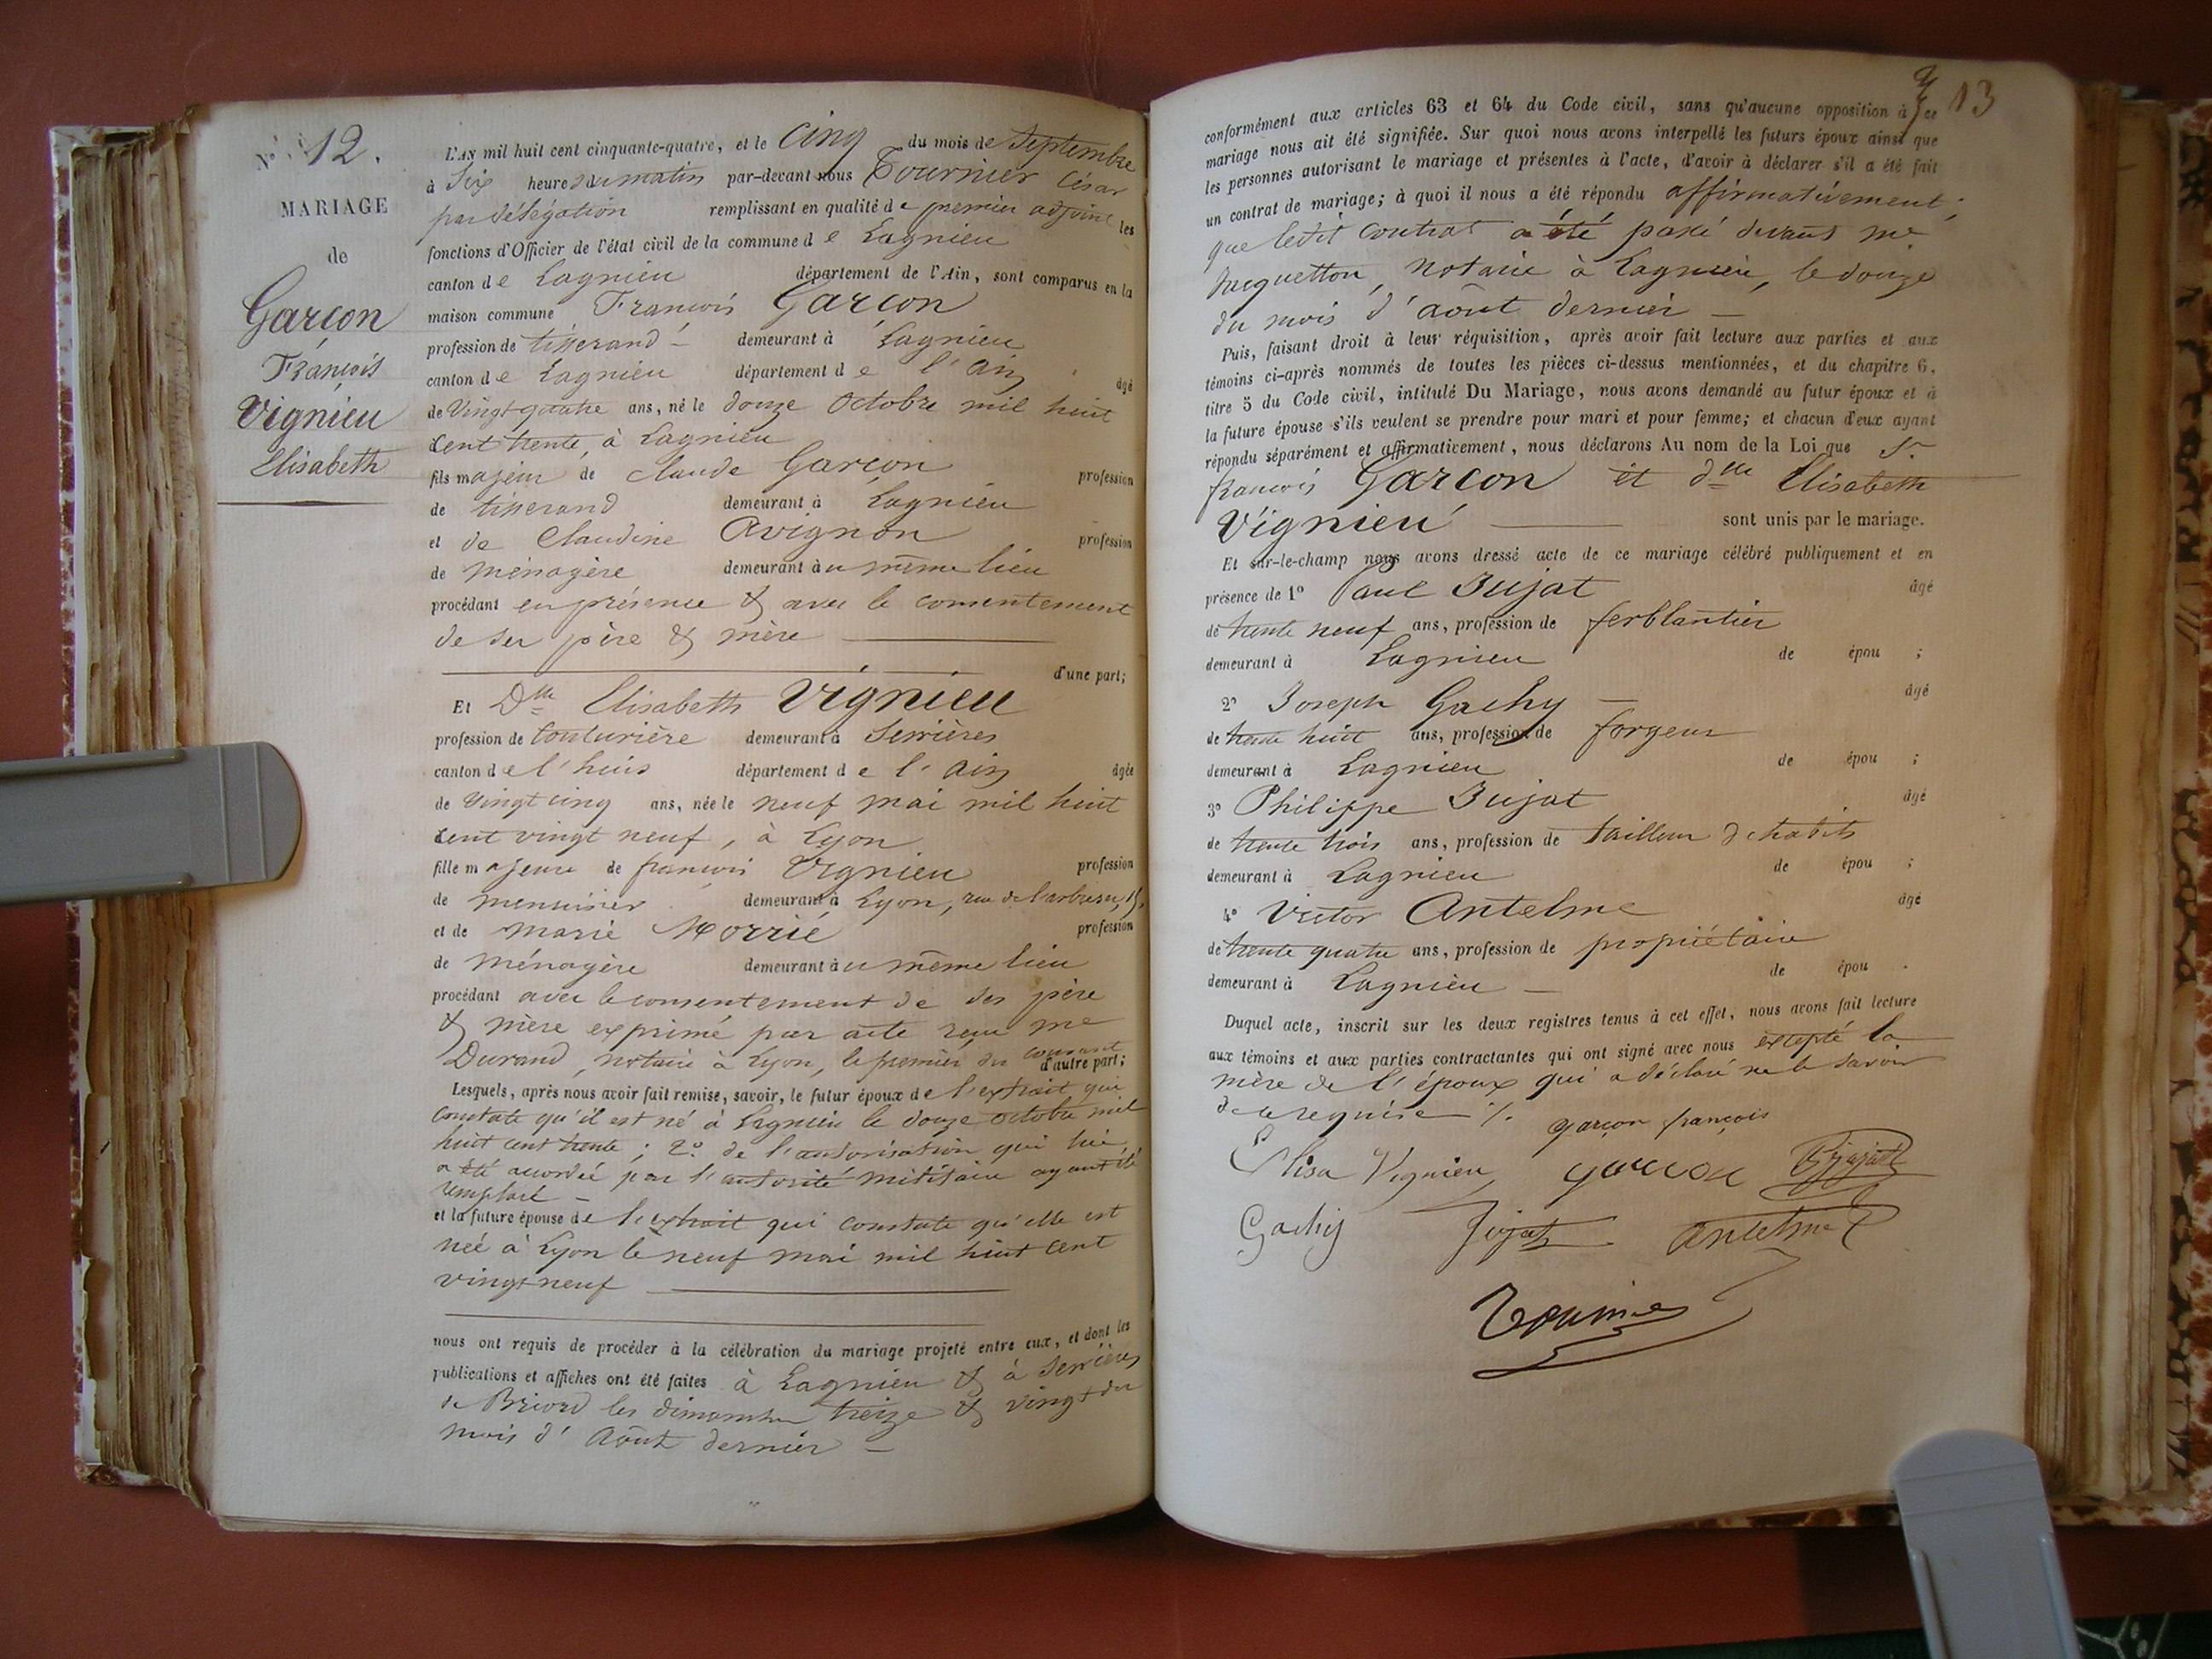 N° 12.
MARIAGE
de
Garçon
François
Vignieu
Elisabeth
L'AN mil huit cent cinquante-quatre, et le cinq du mois de Septembre
à Six heures du matin par-devant nous Tournier César
par délégation remplissant en qualité de premier adjoint les
fonctions d'Officier de l'état civil de la commune de Lagnieu
canton de Lagnieu département de l'Ain, sont comparus en la
maison commune François Garçon
profession de tisserand - demeurant à Lagnieu
canton de Lagnieu département de l'Ain âgé
de vingt quatre ans, né le douze Octobre mil huit
cent trente, à Lagnieu
fils majeur de claude Garçon profession
de tisserand demeurant à Lagnieu
et de Claudine Avignon profession
de ménagère demeurant au même lieu
procédant en présence & avec le consentement
de ses père & mère
d'une part;
Et Dlle Elisabeth Vignieu
profession de couturière demeurant à Serrières
canton de l'huis département de l'Ain âgée
de vingt cinq ans, née le neuf mai mil huit
cent vingt neuf, à Lyon
fille majeure de françois Vignieu profession
de menuisier demeurant à Lyon, rue de l'arbresec, 15,
et de marie Morrié profession
de ménagère demeurant au même lieu
procédant avec le consentement de ses père
& mère exprimé par acte reçu me
Durand, notaire à Lyon, le premier du courant
d'autre part;
Lesquels, après nous avoir fait remise, savoir, le futur époux de l'extrait qui
constate qu'il est né à Lagnieu le douze octobre mil
huit cent trente; 2° de l'autorisation qui lui
a été accordée par l'autorité militaire ayant été
remplacé -
et la future épouse de l'extrait qui constate qu'elle est
née à Lyon le neuf mai mil huit cent
vingt neuf
nous ont requis de procéder à la célébration du mariage projeté entre eux, et dont les
publications et affiches ont été faites à Lagnieu & à Serrières
de Briord les dimanches treize & vingt du
mois d'Août dernier -
13
conformément aux articles 63 et 64 du Code civil, sans qu'aucune opposition à ce
mariage nous ait été signifiée. Sur quoi nous avons interpellé les futurs époux ainsi que
les personnes autorisant le mariage et présentes à l'acte, d'avoir à déclarer s'il a été fait
un contrat de mariage; à quoi il nous a été répondu affirmativement;
que ledit contrat a été passé devant me
notaire à Lagnieu, le douze
du mois d'août dernier -
Puis, faisant droit à leur réquisition, après avoir fait lecture aux parties et aux
témoins ci-après nommés de toutes les pièces ci-dessus mentionnées, et du chapitre 6,
titre 5 du Code civil, intitulé Du Mariage, nous avons demandé au futur époux et à
la future épouse s'ils veulent se prendre pour mari et pour femme; et chacun d'eux ayant
répondu séparément et affirmativement, nous déclarons Au nom de la Loi que S.
françois Garçon et dlle Elisabeth
Vignieu sont unis par le mariage.
Et sur-le-champ nous avons dressé acte de ce mariage célébré publiquement et en
présence de 1° Paul Jujat âgé
de trente neuf ans, profession de ferblantier
demeurant à Lagnieu de épou ;
2° Joseph Gachy - âgé
de trente huit ans, profession de forgeur
demeurant à Lagnieu de épou ;
3° Philippe Jujat âgé
de trente trois ans, profession de tailleur d'habits
demeurant à Lagnieu de épou ;
4° Victor Antelme âgé
de trente quatre ans, profession de propriétaire
demeurant à Lagnieu - de épou .
Duquel acte, inscrit sur les deux registres tenus à cet effet, nous avons fait lecture
aux témoins et aux parties contractantes qui ont signé avec nous excepté la
mère de l'époux qui a déclaré ne le savoir
de ce requise /.
garçon françois
Elisa Vignieu garcon Jujat
Gachy Jujat Antelme
Tournier